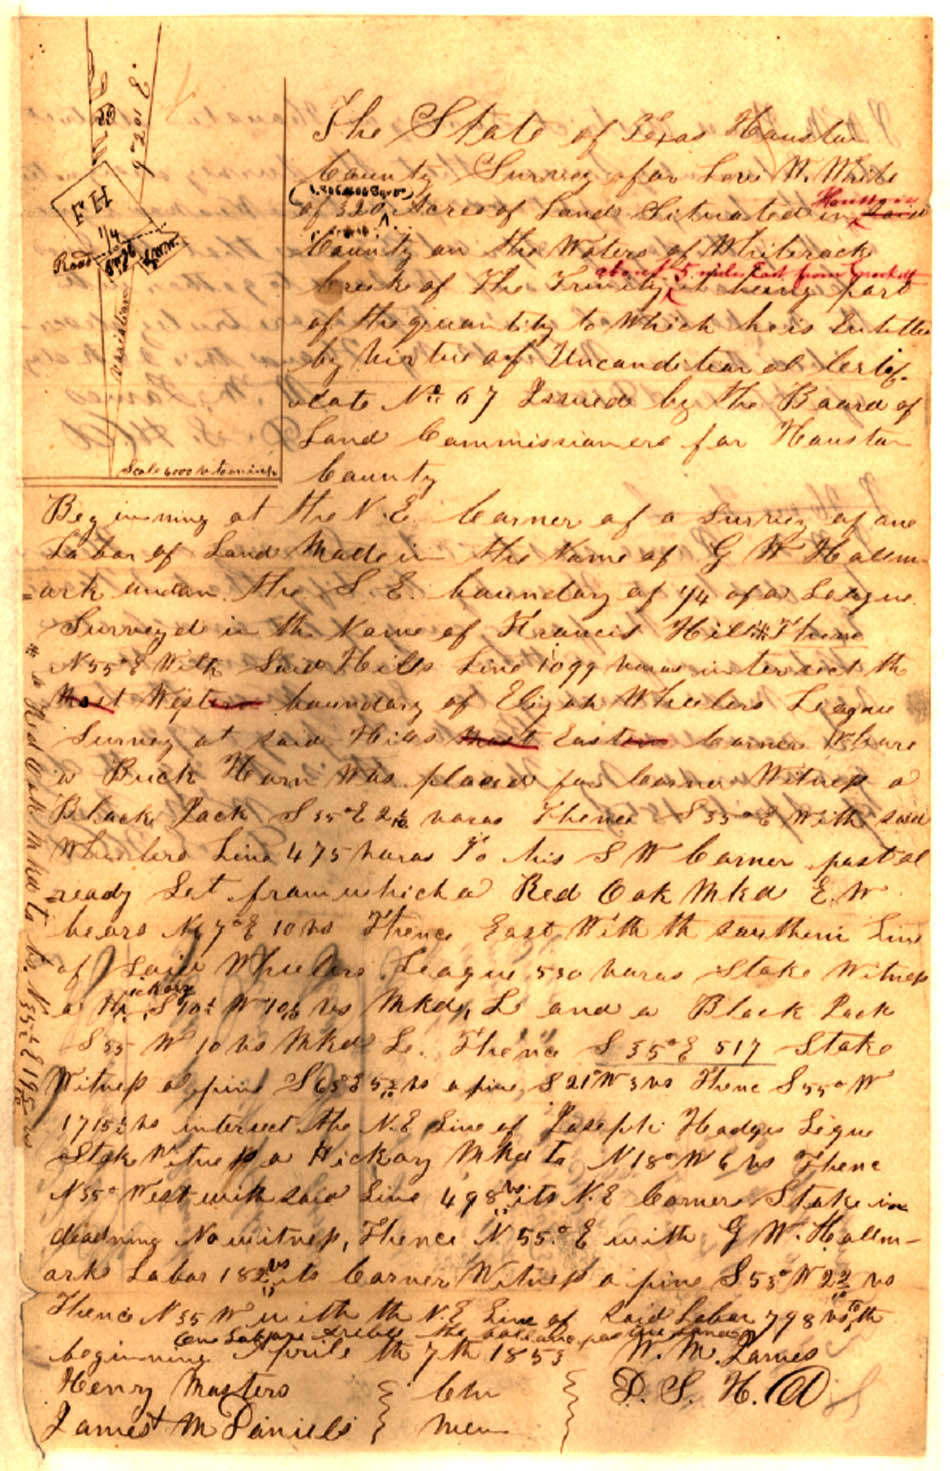 9° 20' E.
F H
1/4
Road
Scale 4000 vs to an inch
The State of Texas Houston
County Survey for Levi W. White
of 320 Acres of Land Situated in Houston Said
County on the Waters of Whiterock
about 5 miles East from Crockett
Creek of The Trinity, it being part
of the quantity to Which he is Intitle
by Virtue of Unconditional Certif-
icate No. 67 Issued by the Board of
Land Commissioners for Houston
County
Beginning at the N. E. Corner of a Survey of one
Labor of Land Made in the Name of G W Hallm-
ark on the S. E. boundary of 1/4 of a League
Surveyd in the Name of Francis Hill Thence
N 55° E With Said Hills Line 1099 varas intersect th
Most Western boundary of Elizah Wheelers League
Survey at said Hills Most Eastern Corner Whare
a Buck Horn Was placed for Corner Witness a
Black Jack S 35° E varas Thence S 35° E With said
Wheelers Line 475 varas To his S W Corner post al
ready Set from which a Red Oak Mkd E. W
bears N 7° E 10 vs Thence East With th southern Line
of Said Wheelers League 530 varas Stake Witness
a Hickory Mkd L and a Black Jack
S 55 W 10 vs Mkd L. Thence S 35° E 517 Stake
Witness a pine vs a pine S 21° W 3 vs Thence S 55° W
vs intersect the N. E Line of Joseph Hodges Legue
Stake Witness a Hickory Mkd L N 18° W 6 vs Thence
N 35° West with said Line 498 vs its N. E Corner Stake in
deadning No witness, Thence N. 55.° E with G W. Hallm-
arks Labor 182 vs its Corner Witness a pine S 53° W vs
Thence N 35 W with th N. E Line of Said Labor 798 vs to th
beginning Aprile th 7th 1853 W. M. James
Henry Masters } Chn } D. S. H. C
James McDaniels } men }
a Red Oak Mkd